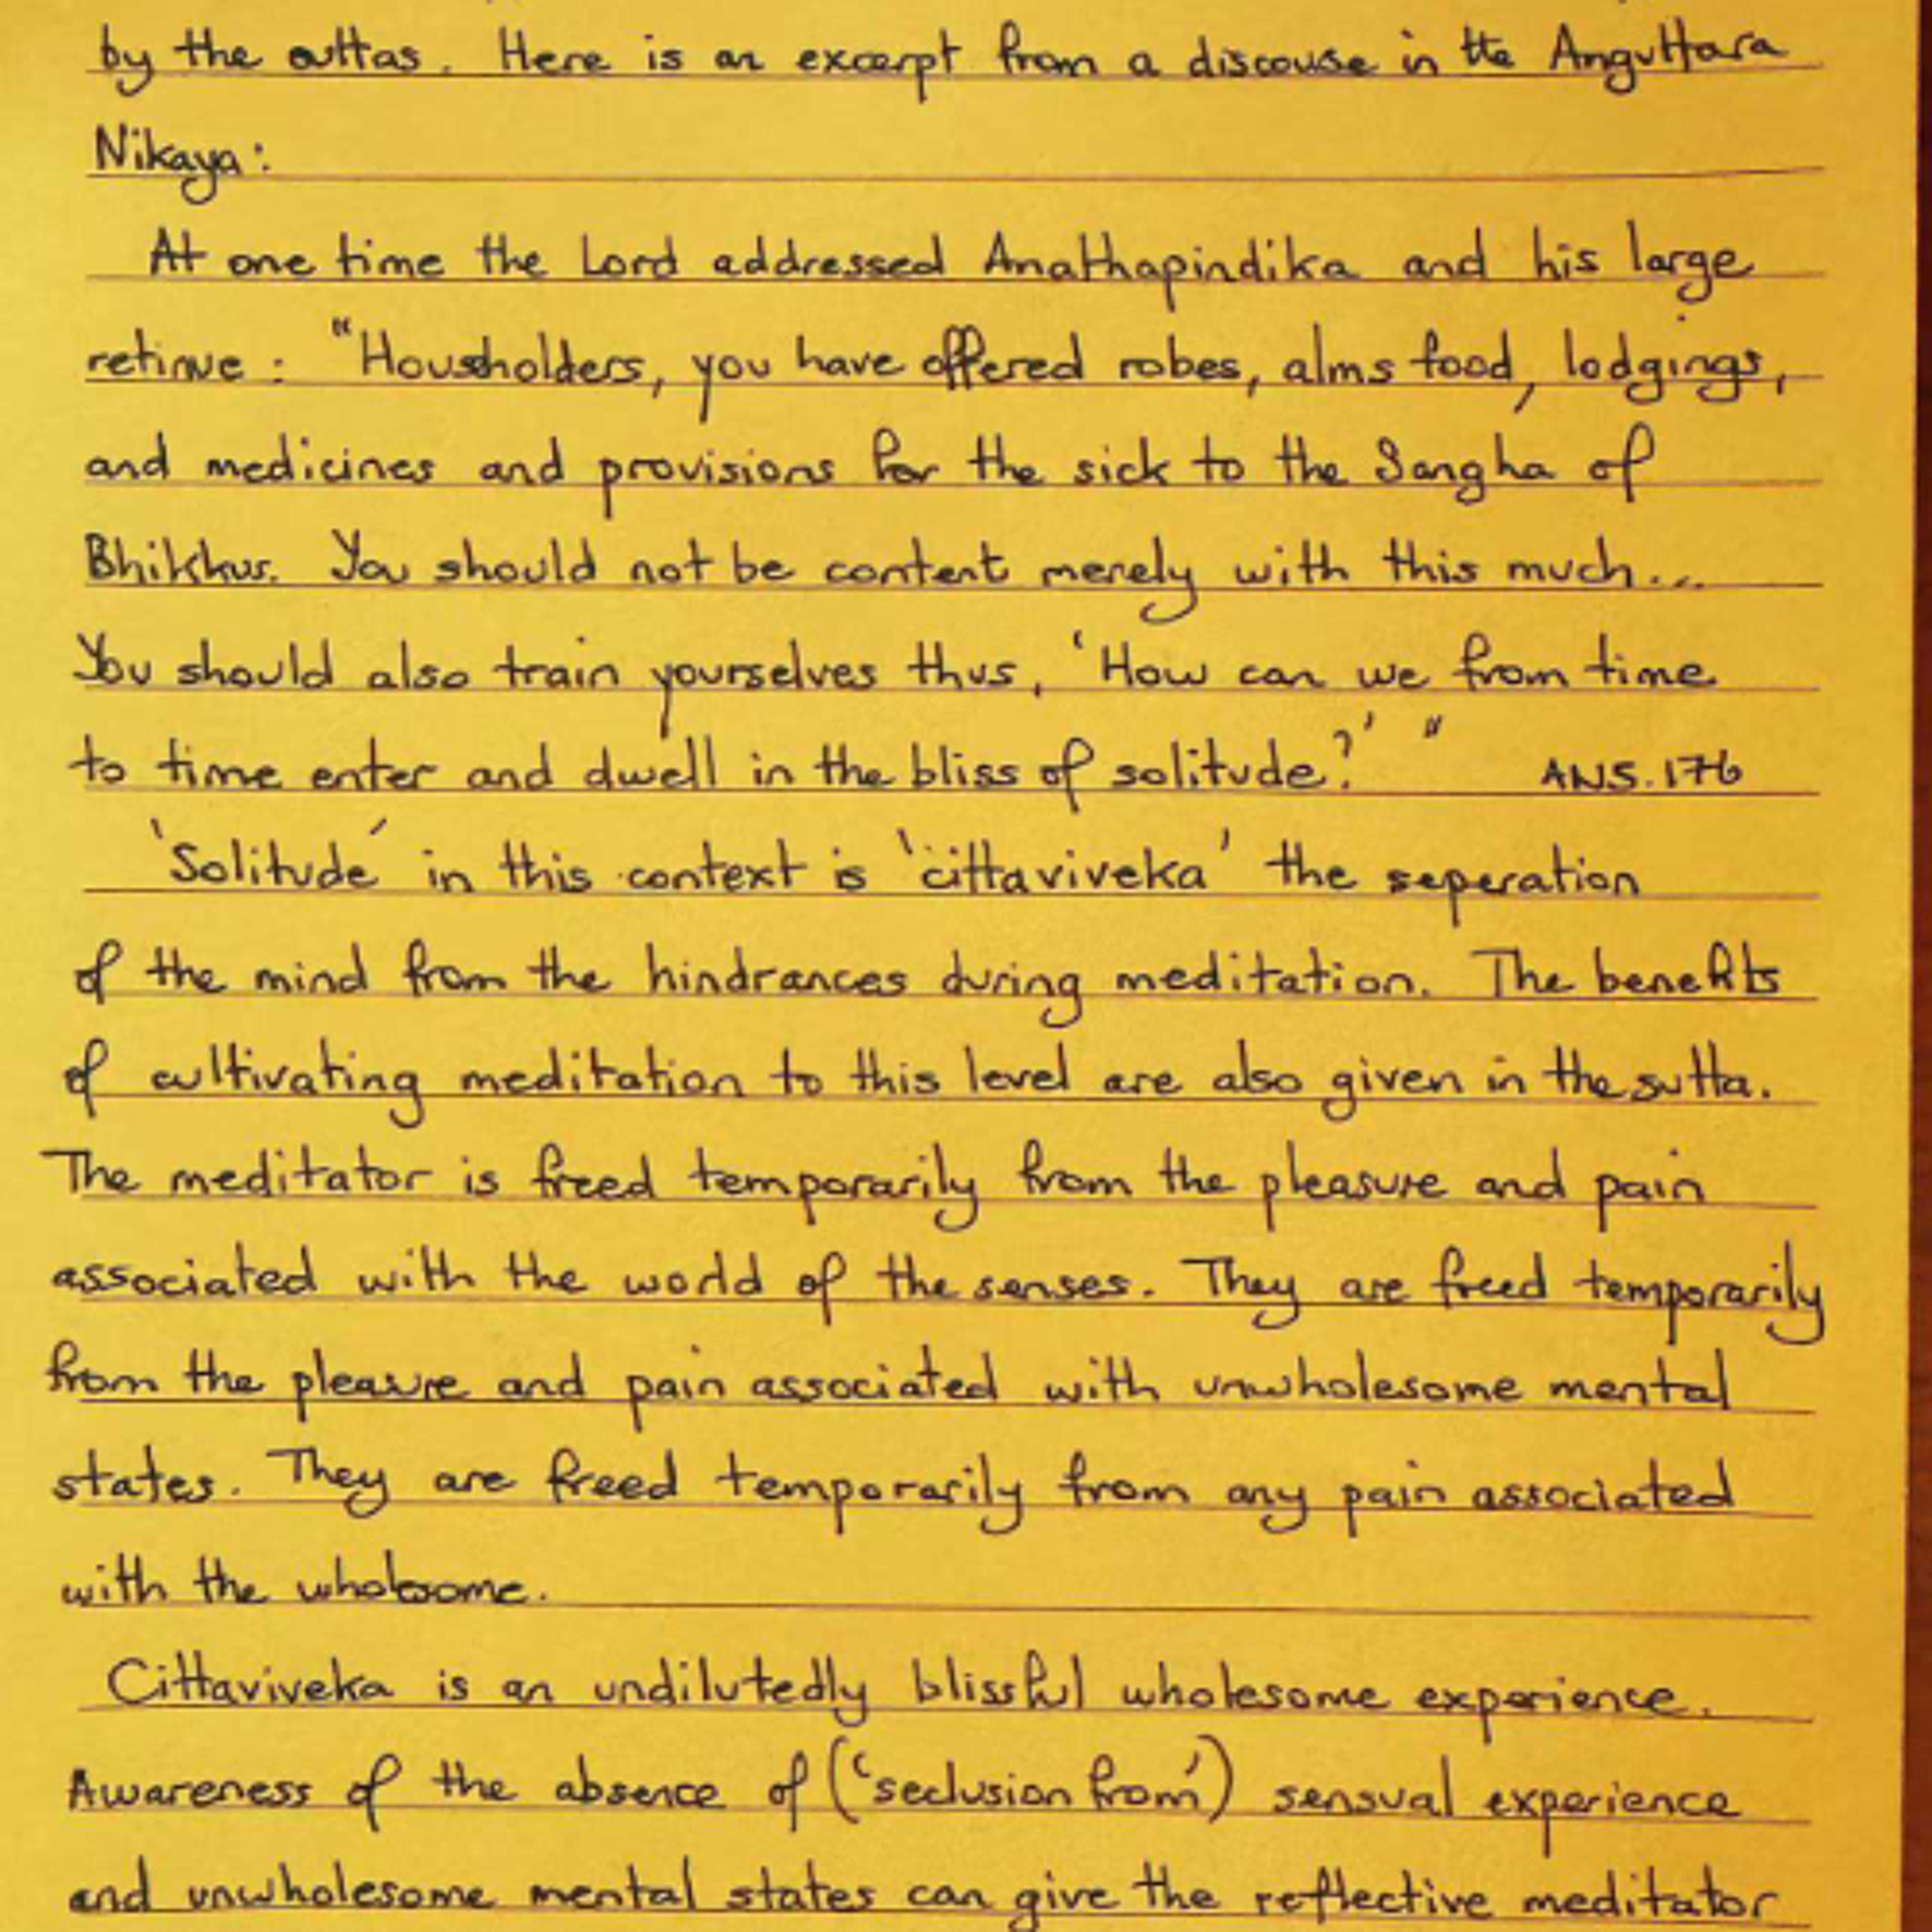 by the suttas. Here is an excerpt from a discouse in the Anguttara
Nikaya:
At one time the Lord addressed Anathapindika and his large
retinue: "Housholders, you have offered robes, alms food, lodgings,
and medicines and provisions for the sick to the Sangha of
Bhikkus. You should not be content merely with this much...
You should also train yourselves thus, 'How can we from time
to time enter and dwell in the bliss of solitude?' " AN5.176
'Solitude' in this context is 'cittaviveka' the seperation
of the mind from the hindrances during meditation. The benefits
of cultivating meditation to this level are also given in the sutta.
The meditator is freed temporarily from the pleasure and pain
associated with the world of the senses. They are freed temporarily
from the pleasure and pain associated with unwholesome mental
states. They are freed temporarily from any pain associated
with the wholesome.
Cittaviveka is an undilutedly blissful wholesome experience.
Awareness of the absence of ('seclusion from') sensual experience
and unwholesome mental states can give the reflective meditator